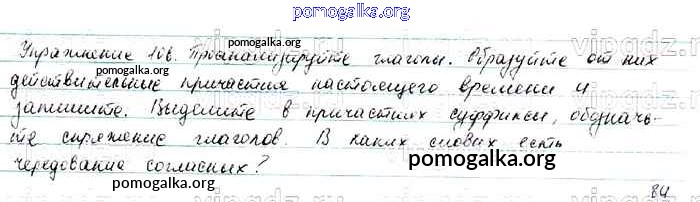 pomogalka.org
Упражнение 106. Проанализируйте глаголы. Образуйте от них
pomogalka.org
действительные причастия настоящего времени и
запишите. Выделите в причастиях суффиксы, обозначь-
те спряжение глаголов. В каких словах есть
чередование согласных?
pomogalka.org
pomogalka.org
84